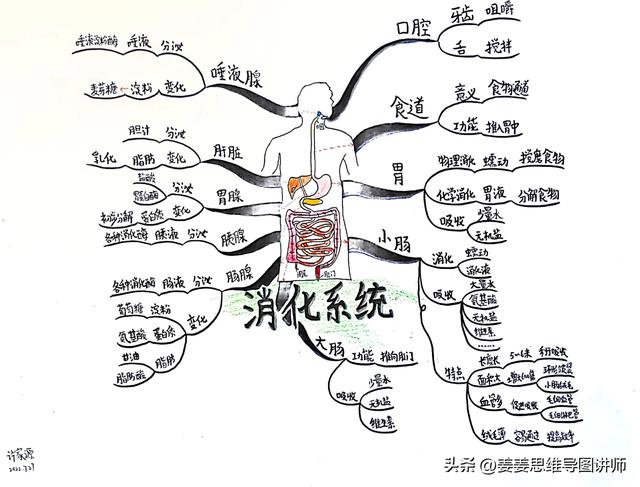 消化系统
口腔
牙齿 咀嚼
舌 搅拌
食道
意义 食物通道
功能 推入胃中
胃
物理消化 蠕动 搅磨食物
化学消化 胃液 分解食物
吸收 少量水
无机盐
小肠
消化 蠕动
消化液
吸收 大量水
氨基酸
无机盐
维生素
……
特点
长度长 5~6米
面积大
小肠绒毛
血管多
毛细血管
毛细淋巴管
绒毛薄 容易通过 提高效率
大肠
功能 推向肛门
吸收 少量水
无机盐
维生素
唾液腺
唾液淀粉酶 唾液 分泌
麦芽糖 ← 淀粉 变化
肝脏
胆汁 分泌
乳化 脂肪 变化
胃腺
盐酸
蛋白酶 分泌
初步分解 蛋白质 变化
胰腺
各种消化酶 胰液 分泌
肠腺
各种消化酶 肠液 分泌
变化
葡萄糖 淀粉
氨基酸 蛋白质
甘油 脂肪
脂肪酸
肛门
许家源
2022.7.27
头条 @姜姜思维导图讲师